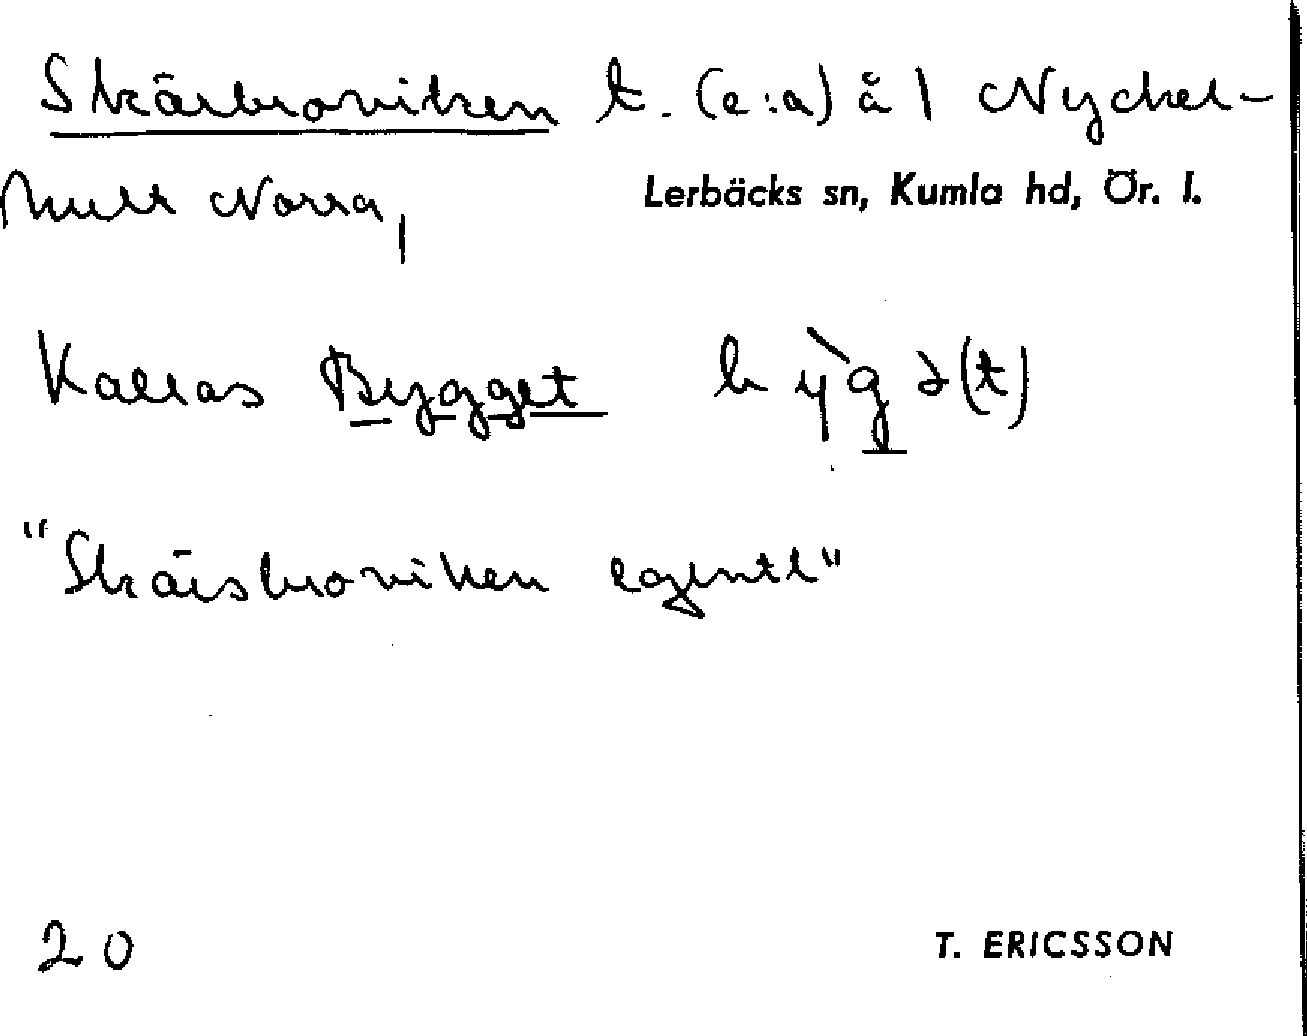 Skärbroviken t. (e:a) å 1 Nyckel-
hult Norra,
Lerbäcks sn, Kumla hd, Ör. l.
Kallas Bygget bỳgə(t)
"Skärsbroviken egentl"
20
T. ERICSSON